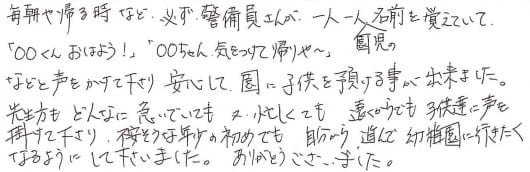 毎朝や帰る時など、必ず警備員さんが、一人一人園児の名前を覚えていて、
「〇〇くんおはよう!」、「〇〇ちゃん気をつけて帰りや~」
などと声をかけて下さり安心して、園に子供を預ける事が出来ました。
先生方もどんなに急いでいても又、忙しくても遠くからでも子供達に声を
掛けて下さり、不安そうな年少の初めでも自分から進んで幼稚園に行きたく
なるようにして下さいました。ありがとうございました。